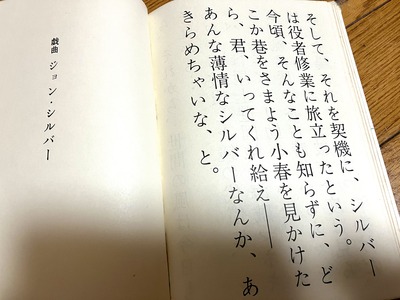 そして、それを契機に、シルバー
は役者修業に旅立ったという。
今頃、そんなことも知らずに、ど
こか巷をさまよう小春を見かけた
ら、君、いってくれ給え――
あんな薄情なシルバーなんか、あ
きらめちゃいな、と。
戯曲 ジョン・シルバー